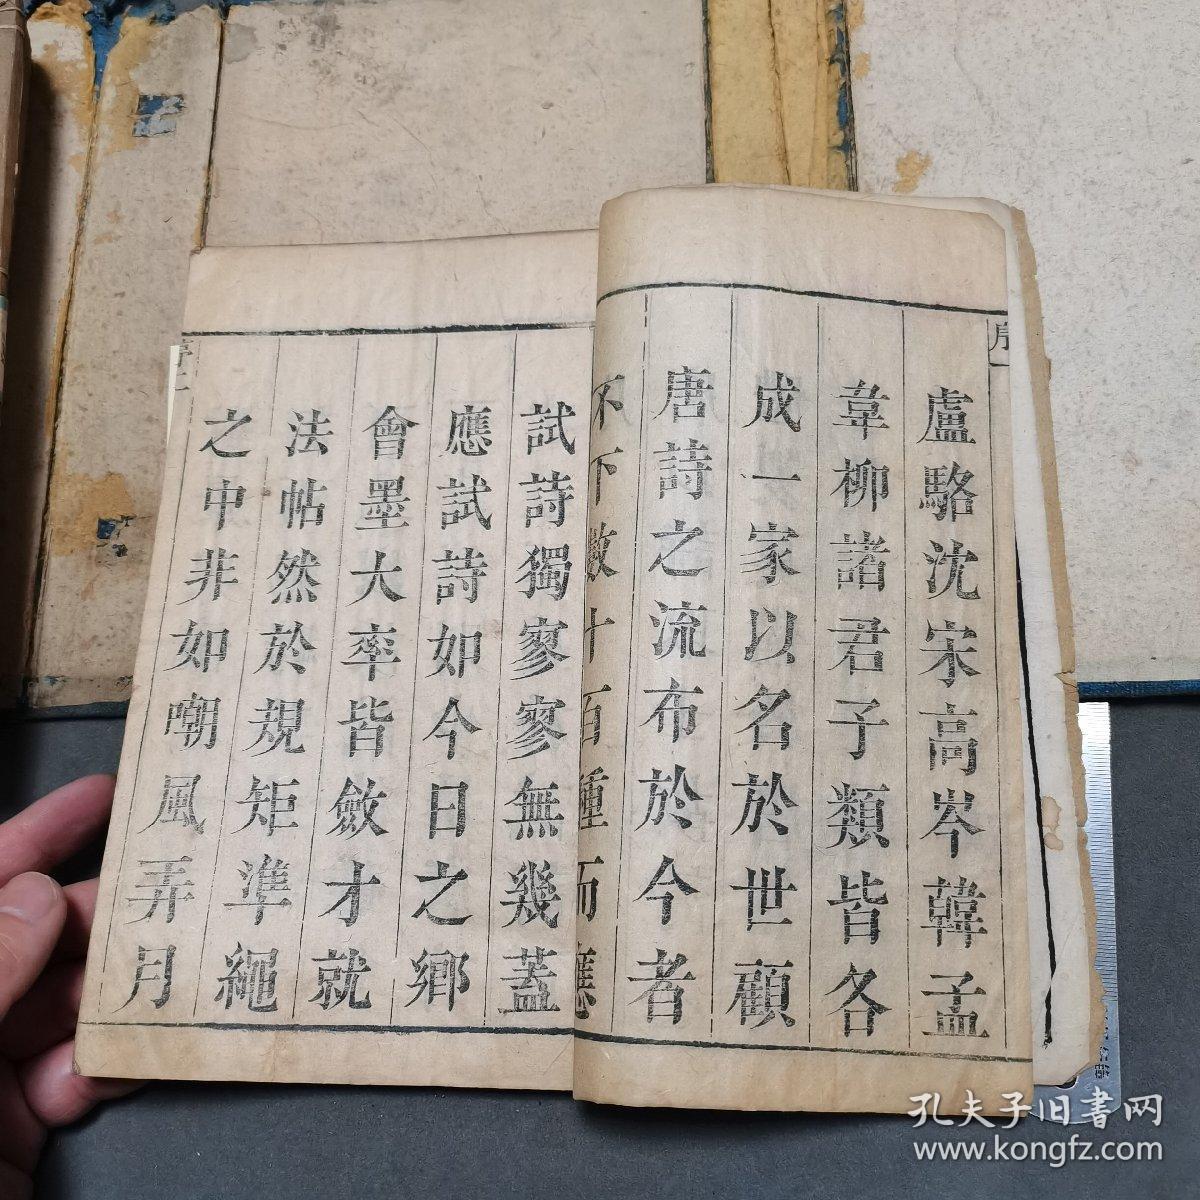 序一
盧駱沈宋高岑韓孟
韋柳諸君子類皆各
成一家以名於世顧
唐詩之流布於今者
不下數十百種而應
試詩獨寥寥無幾蓋
應試詩如今日之鄉
會墨大率皆斂才就
法帖然於規矩準繩
之中非如嘲風弄月
序二
孔夫子旧書网
www.kongfz.com